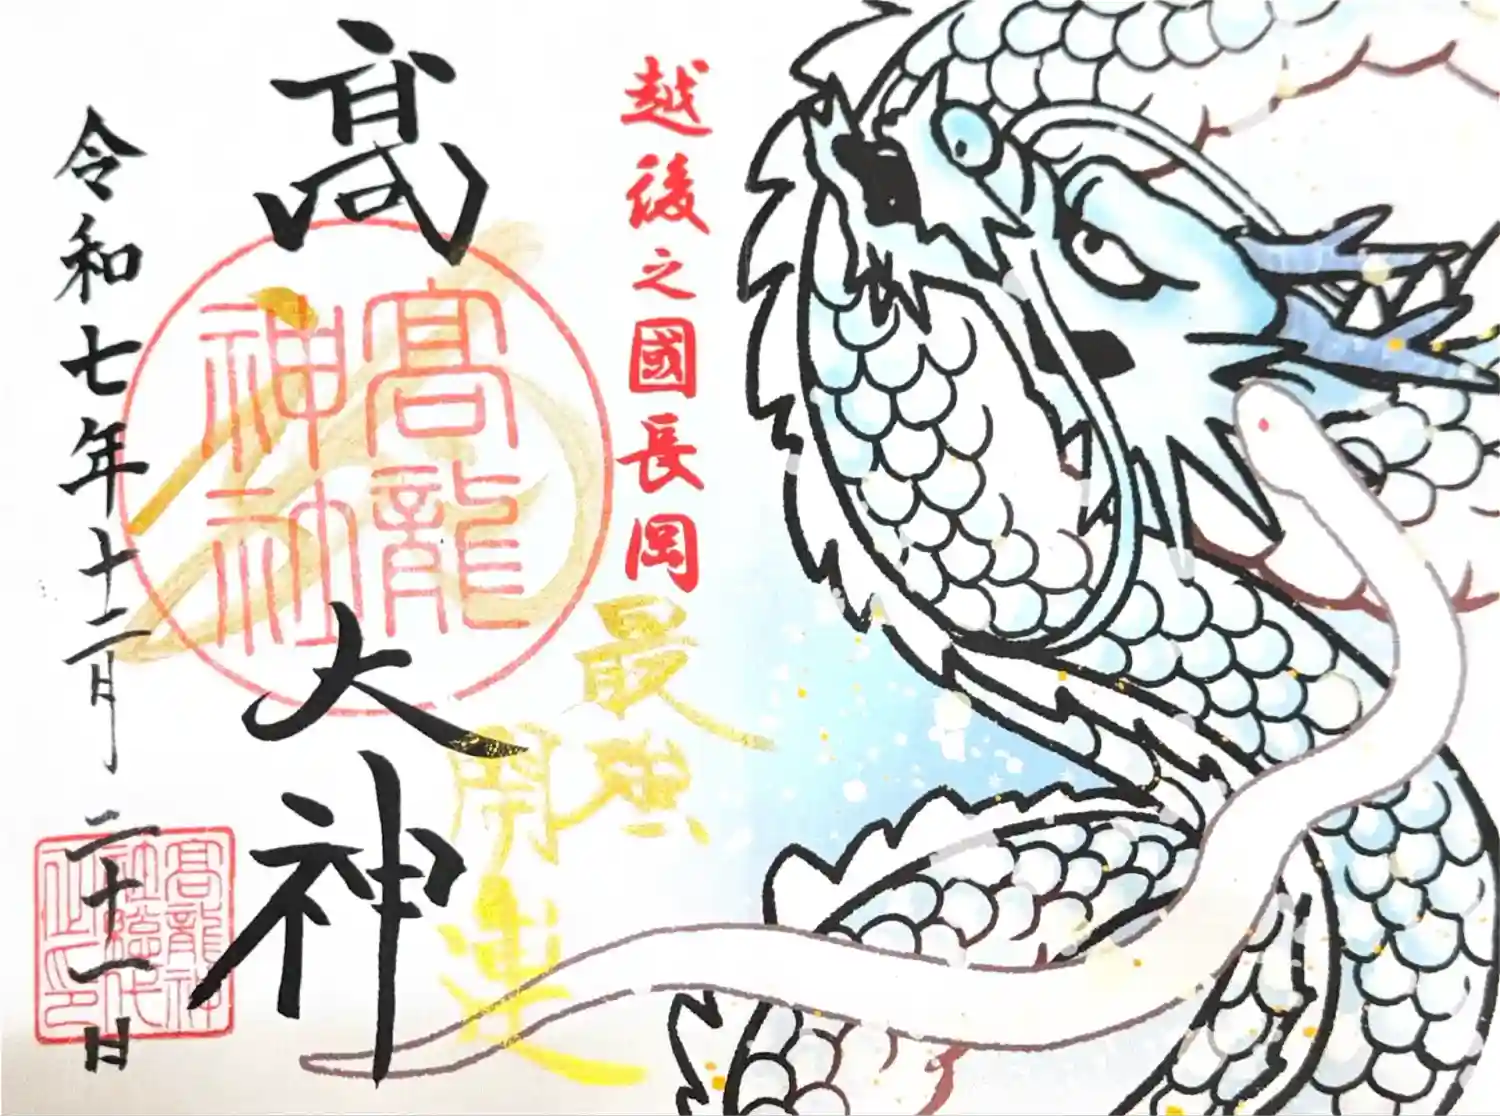 越後之國長岡
最強
開運
髙
大神
髙龍
神社
令和七年十二月二十一日
髙龍神
社総代
之印